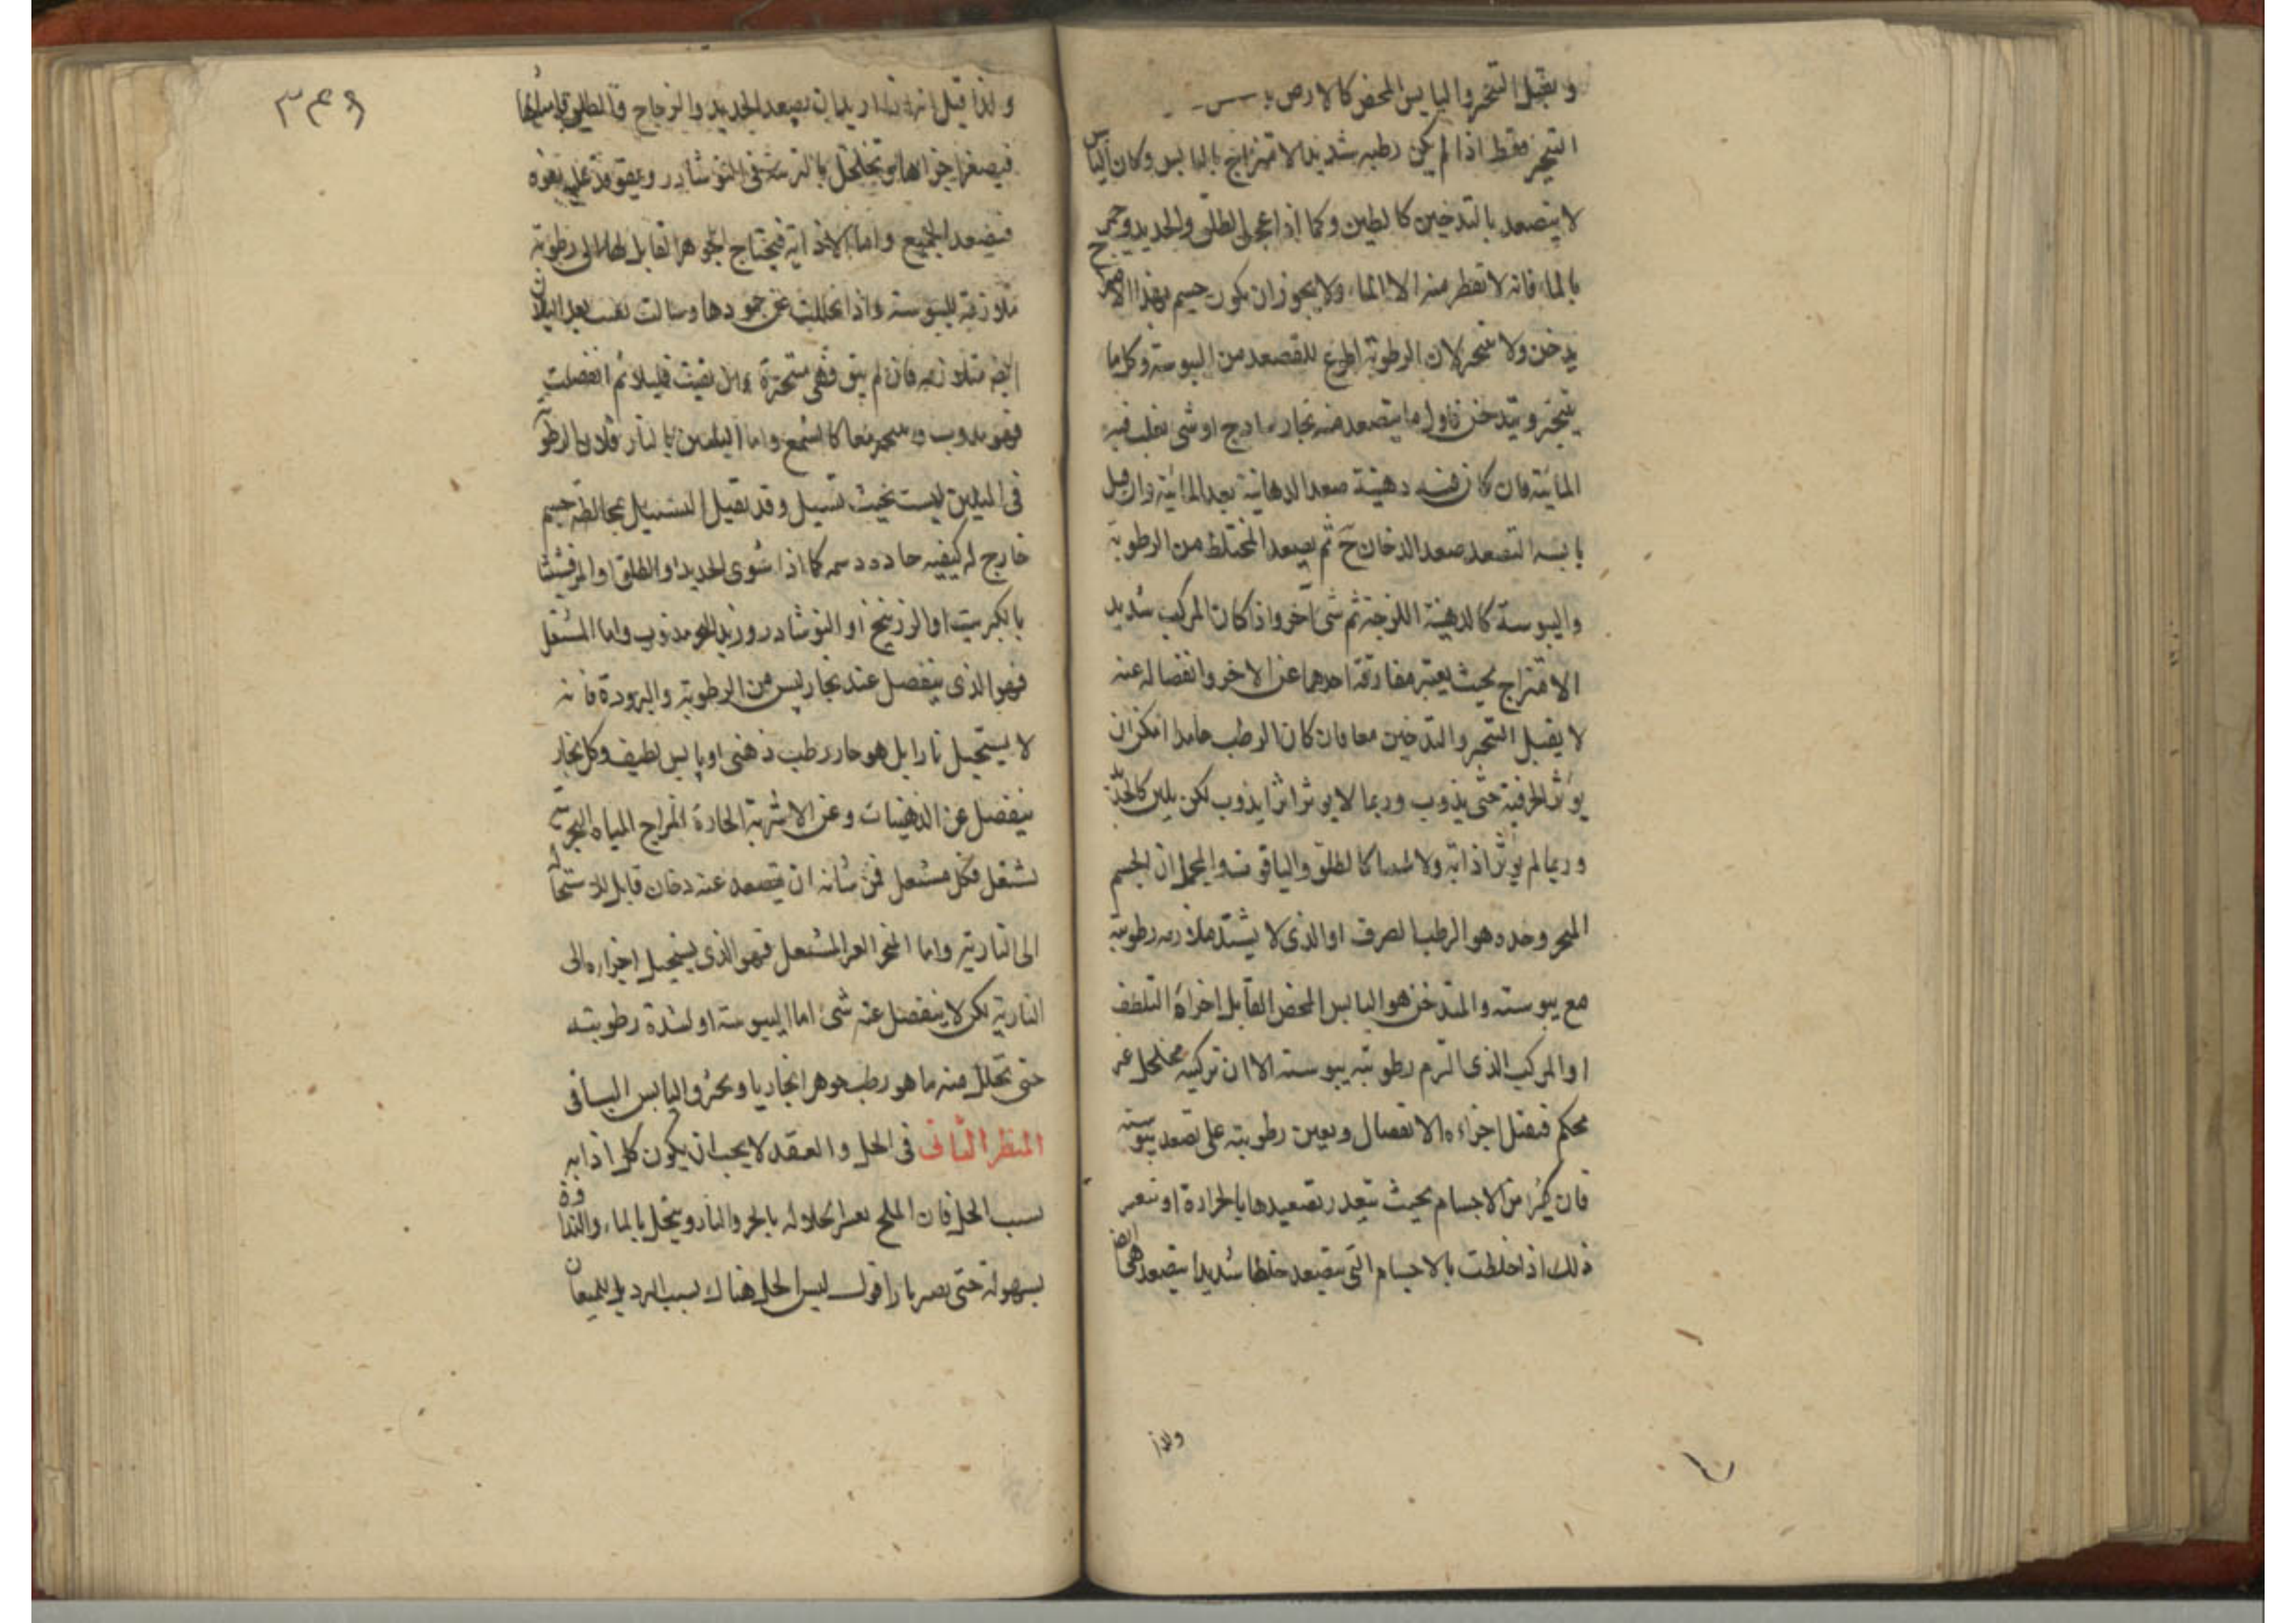 و يقبل التبخر واليابس المحض كالارض
التبخر فقط اذا لم يكن رطبه شديد الامتزاج باليابس وكان اليابس
لا يتصعد بالتدخين كالطين وكما اذا عجن الطلق والحديد وخرج
بالماء فانه لا تقطر منه الا الماء ولا يجوز ان يكون جسم بهذا
يدخن ولا يتبخر لان الرطوبة اطوع للتصعد من اليبوسة وكل ما
يتبخر ويتدخن فاول ما يتصعد منه بخار ساذج او شي يغلب فيه
المائية فان كان فيه دهنية صعد الدهانية بعد المائية وان قبل
يابسه التصعد صعد الدخان ح ثم يصعد المختلط من الرطوبة
واليبوسة كالدهنية اللزجة ثم شي آخر واذا كان المركب شديد
الامتزاج بحيث يعتبر مفارقة احدهما عن الاخر وانفصاله عنه
لا يقبل التبخر والتدخين معا فان كان الرطب جامدا امكن ان
يوثر الحر فيه حتى يذوب وربما لا يوثر اثرا يذوب لكن يلين كالحديد
وربما لم يوثر اذابة ولا تليينا كالطلق والياقوت وبالجملة ان الجسم
المبخر وحده هو الرطب الصرف او الذى لا يشتد ملازمه رطوبته
مع يبوسته والمتدخن هو اليابس المحض القابل اجزاه التلطف
او المركب الذى التزم رطوبته يبوسته الا ان تركيبه مخلخل غير
محكم فيقبل اجزاءه الانفصال ويعين رطوبته على تصعد يبوسته
فان كثيرا من الاجسام بحيث يتعذر تصعيدها بالحرارة او يتعسر
ذلك اذا خلطت بالاجسام التى يتصعد خلطا شديدا يتصعد هى ايضا
ولذا
٣٤٩
ولذا قيل انه اذا اريد ان يصعد الحديد والزجاج والطلق
فيصغر اجزاها ويتخلخل بالتربية فى النوشادر ويوقد عليه بقوه
فيصعد الجميع واما الاذابة فيحتاج الجوهر القابل لها الى رطوبة
متلازمة لليبوسة واذا تحللت عن جمودها وسالت بعد السيلان
ايضا متلازمه فان لم يبق فهى متبخرة وان بقيت قليلا ثم انفصلت
فهو يذوب ويتبخر معا كالشمع واما التليين بالنار فلان الرطوبة
فى الملين ليست بحيث تسيل وقد يقبل التسييل بمخالطة جسم
خارج له كيفيه حاده دسمه كما اذا شوى الحديد او الطلق او المرقشيثا
بالكبريت او الزرنيخ او النوشادر وزيد الحر فيذوب واما المشتعل
فهو الذى ينفصل عنه بخار ليس من الرطوبة والبرودة فانه
لا يستحيل نارا بل هو حار رطب دهنى او يابس لطيف وكل بخار
ينفصل عن الدهنيات وعن الاشربة الحارة المزاج المياه البحرية
يشتعل فكل مشتعل فمن شانه ان يتصعد عنه دخان قابل للاستحالة
الى النارية واما المتجمر الغير المشتعل فهو الذى يستحيل اجزاه الى
النارية لكن لا ينفصل عنه شئ اما ليبوسته او لشدة رطوبته
حتى تحلل منه ما هو رطب جوهرا بخاريا واليابس الباقى
المنظر الثانى فى الحل والعقد لا يجب ان يكون كل اذابه
بسبب الحل فان الملح يعسر انحلاله بالحر والنار وينحل بالماء والنداوة
بسهولة حتى يصير نارا قول ليس الحل هناك بسبب البرد بل للميعان